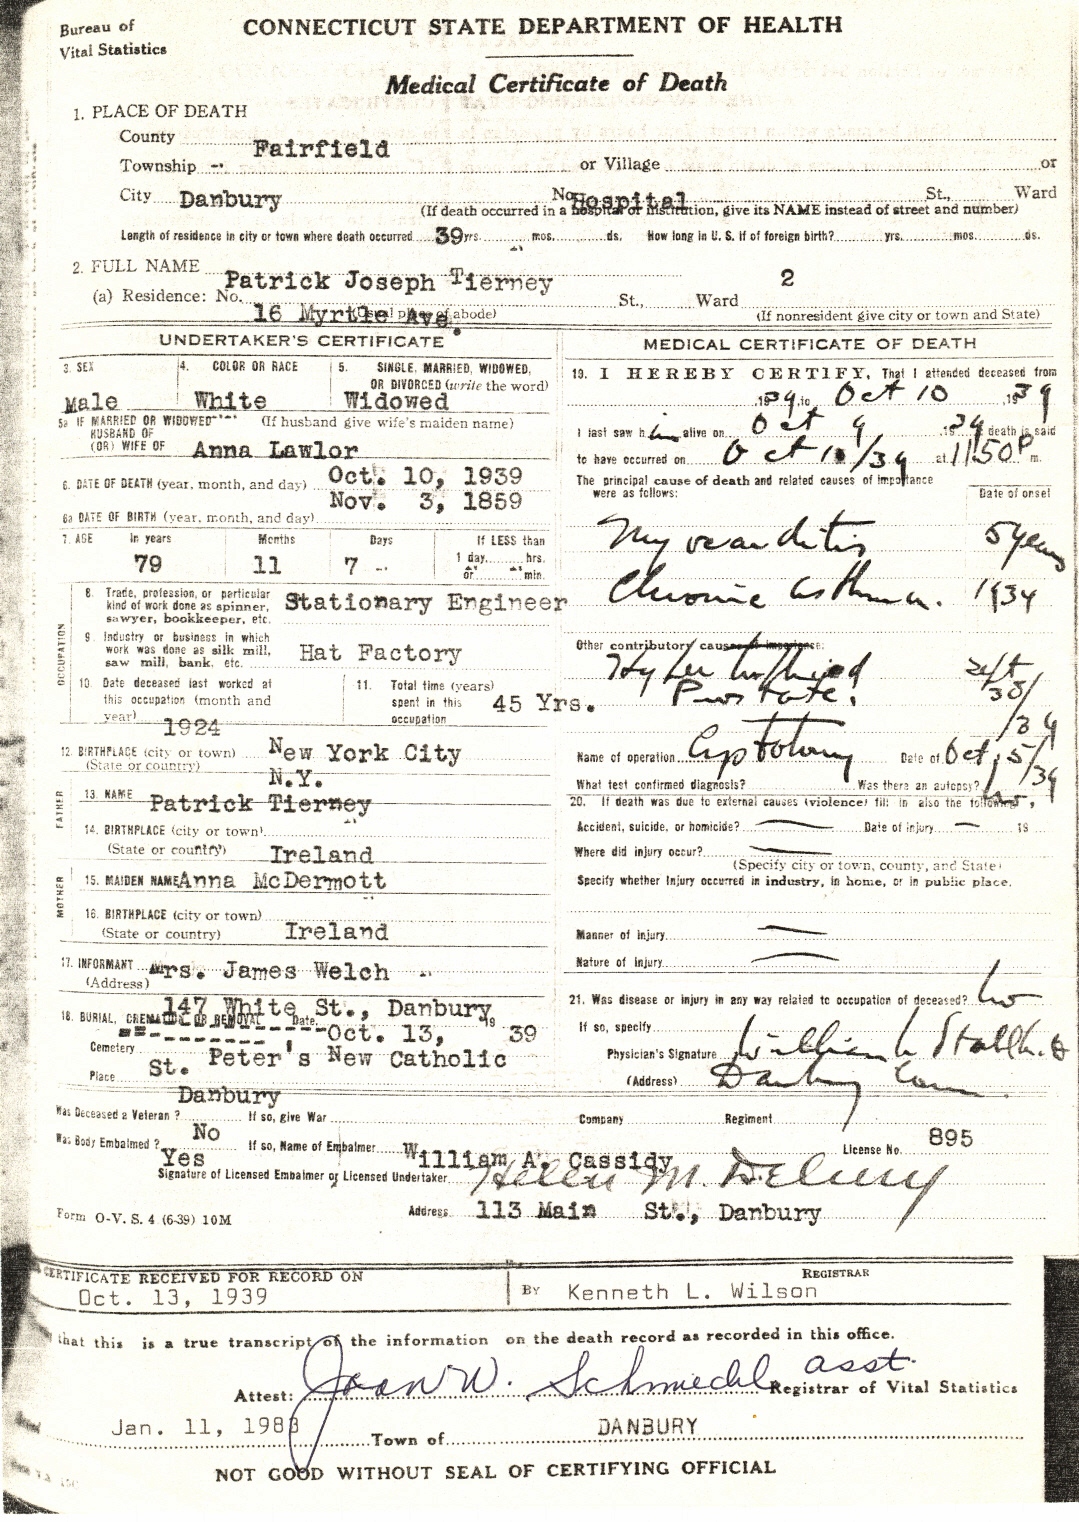 Bureau of
Vital Statistics
CONNECTICUT STATE DEPARTMENT OF HEALTH
Medical Certificate of Death
1. PLACE OF DEATH
County Fairfield
Township -- or Village or
City Danbury No. Hospital St., Ward
(If death occurred in a hospital or institution, give its NAME instead of street and number)
Length of residence in city or town where death occurred 39 yrs. mos. ds. How long in U. S. if of foreign birth? yrs. mos. ds.
2. FULL NAME Patrick Joseph Tierney
(a) Residence: No. 16 Myrtle Ave. St., 2 Ward
(Usual place of abode) (If nonresident give city or town and State)
UNDERTAKER'S CERTIFICATE
3. SEX Male
4. COLOR OR RACE White
5. SINGLE, MARRIED, WIDOWED, OR DIVORCED (write the word) Widowed
5a IF MARRIED OR WIDOWED (If husband give wife's maiden name)
HUSBAND OF
(OR) WIFE OF Anna Lawlor
6. DATE OF DEATH (year, month, and day) Oct. 10, 1939
6a DATE OF BIRTH (year, month, and day) Nov. 3, 1859
7. AGE In years 79 Months 11 Days 7 If LESS than 1 day hrs. or min.
OCCUPATION
8. Trade, profession, or particular kind of work done as spinner, sawyer, bookkeeper, etc. Stationary Engineer
9. Industry or business in which work was done as silk mill, saw mill, bank, etc. Hat Factory
10. Date deceased last worked at this occupation (month and year) 1924
11. Total time (years) spent in this occupation 45 Yrs.
12. BIRTHPLACE (city or town) New York City
(State or country) N.Y.
FATHER
13. NAME Patrick Tierney
14. BIRTHPLACE (city or town)
(State or country) Ireland
MOTHER
15. MAIDEN NAME Anna McDermott
16. BIRTHPLACE (city or town)
(State or country) Ireland
17. INFORMANT Mrs. James Welch
(Address) 147 White St., Danbury
18. BURIAL, CREMATION OR REMOVAL Date Oct. 13, 19 39
Cemetery St. Peter's New Catholic
Place Danbury
MEDICAL CERTIFICATE OF DEATH
19. I HEREBY CERTIFY, That I attended deceased from
1939, to Oct 10, 1939
I last saw him alive on Oct 9, 1939 death is said
to have occurred on Oct 10/39 at 1150 P m.
The principal cause of death and related causes of importance were as follows: Date of onset
Myocarditis 5 years
Chronic asthma. 1934
Other contributory causes of importance:
Prostate.
Name of operation Cystotomy Date of Oct 5/39
What test confirmed diagnosis? Was there an autopsy? no
20. If death was due to external causes (violence) fill in also the following:
Accident, suicide, or homicide? — Date of injury — 19
Where did injury occur? —
(Specify city or town, county, and State)
Specify whether Injury occurred in industry, in home, or in public place.
Manner of injury —
Nature of injury —
21. Was disease or injury in any way related to occupation of deceased? no
If so, specify
Physician's Signature William
(Address) Danbury Conn
Was Deceased a Veteran? No If so, give War Company Regiment
Was Body Embalmed? Yes If so, Name of Embalmer William A. Cassidy License No. 895
Signature of Licensed Embalmer or Licensed Undertaker Helen M.
Form O-V. S. 4 (6-39) 10M
Address 113 Main St., Danbury
CERTIFICATE RECEIVED FOR RECORD ON
Oct. 13, 1939
BY Kenneth L. Wilson REGISTRAR
that this is a true transcript of the information on the death record as recorded in this office.
Attest: Joan W. Schmiedel asst. Registrar of Vital Statistics
Jan. 11, 1983 Town of DANBURY
NOT GOOD WITHOUT SEAL OF CERTIFYING OFFICIAL